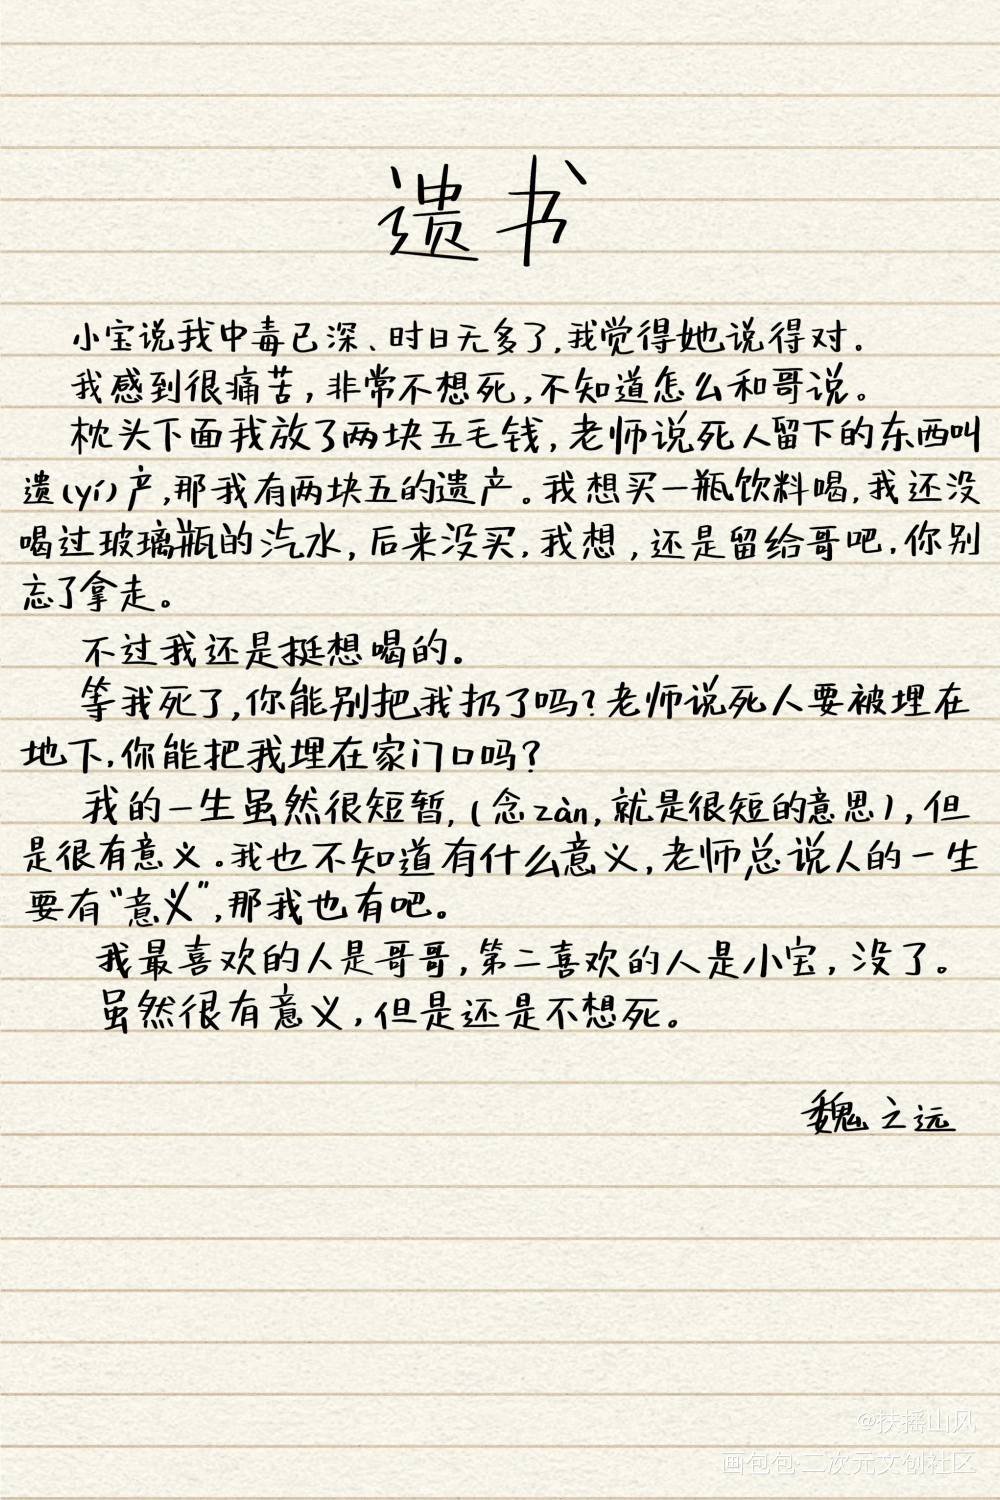 遗书
小宝说我中毒已深、时日无多了,我觉得她说得对。
我感到很痛苦,非常不想死,不知道怎么和哥说。
枕头下面我放了两块五毛钱,老师说死人留下的东西叫
遗(yí)产,那我有两块五的遗产。我想买一瓶饮料喝,我还没
喝过玻璃瓶的汽水,后来没买,我想,还是留给哥吧.你别
忘了拿走。
不过我还是挺想喝的。
等我死了,你能别把我扔了吗?老师说死人要被埋在
地下,你能把我埋在家门口吗?
我的一生虽然很短暂,(念zàn,就是很短的意思),但
是很有意义。我也不知道有什么意义,老师总说人的一生
要有“意义”,那我也有吧。
我最喜欢的人是哥哥,第二喜欢的人是小宝,没了。
虽然很有意义,但是还是不想死。
魏之远
@扶摇山风
画包包·二次元文创社区